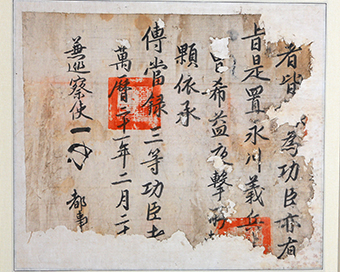 者皆為功臣亦有
旨是置永川義兵
希益擊
顆依承
傳當錄二等功臣者
萬曆二十一年二月二十
兼巡察使
都事